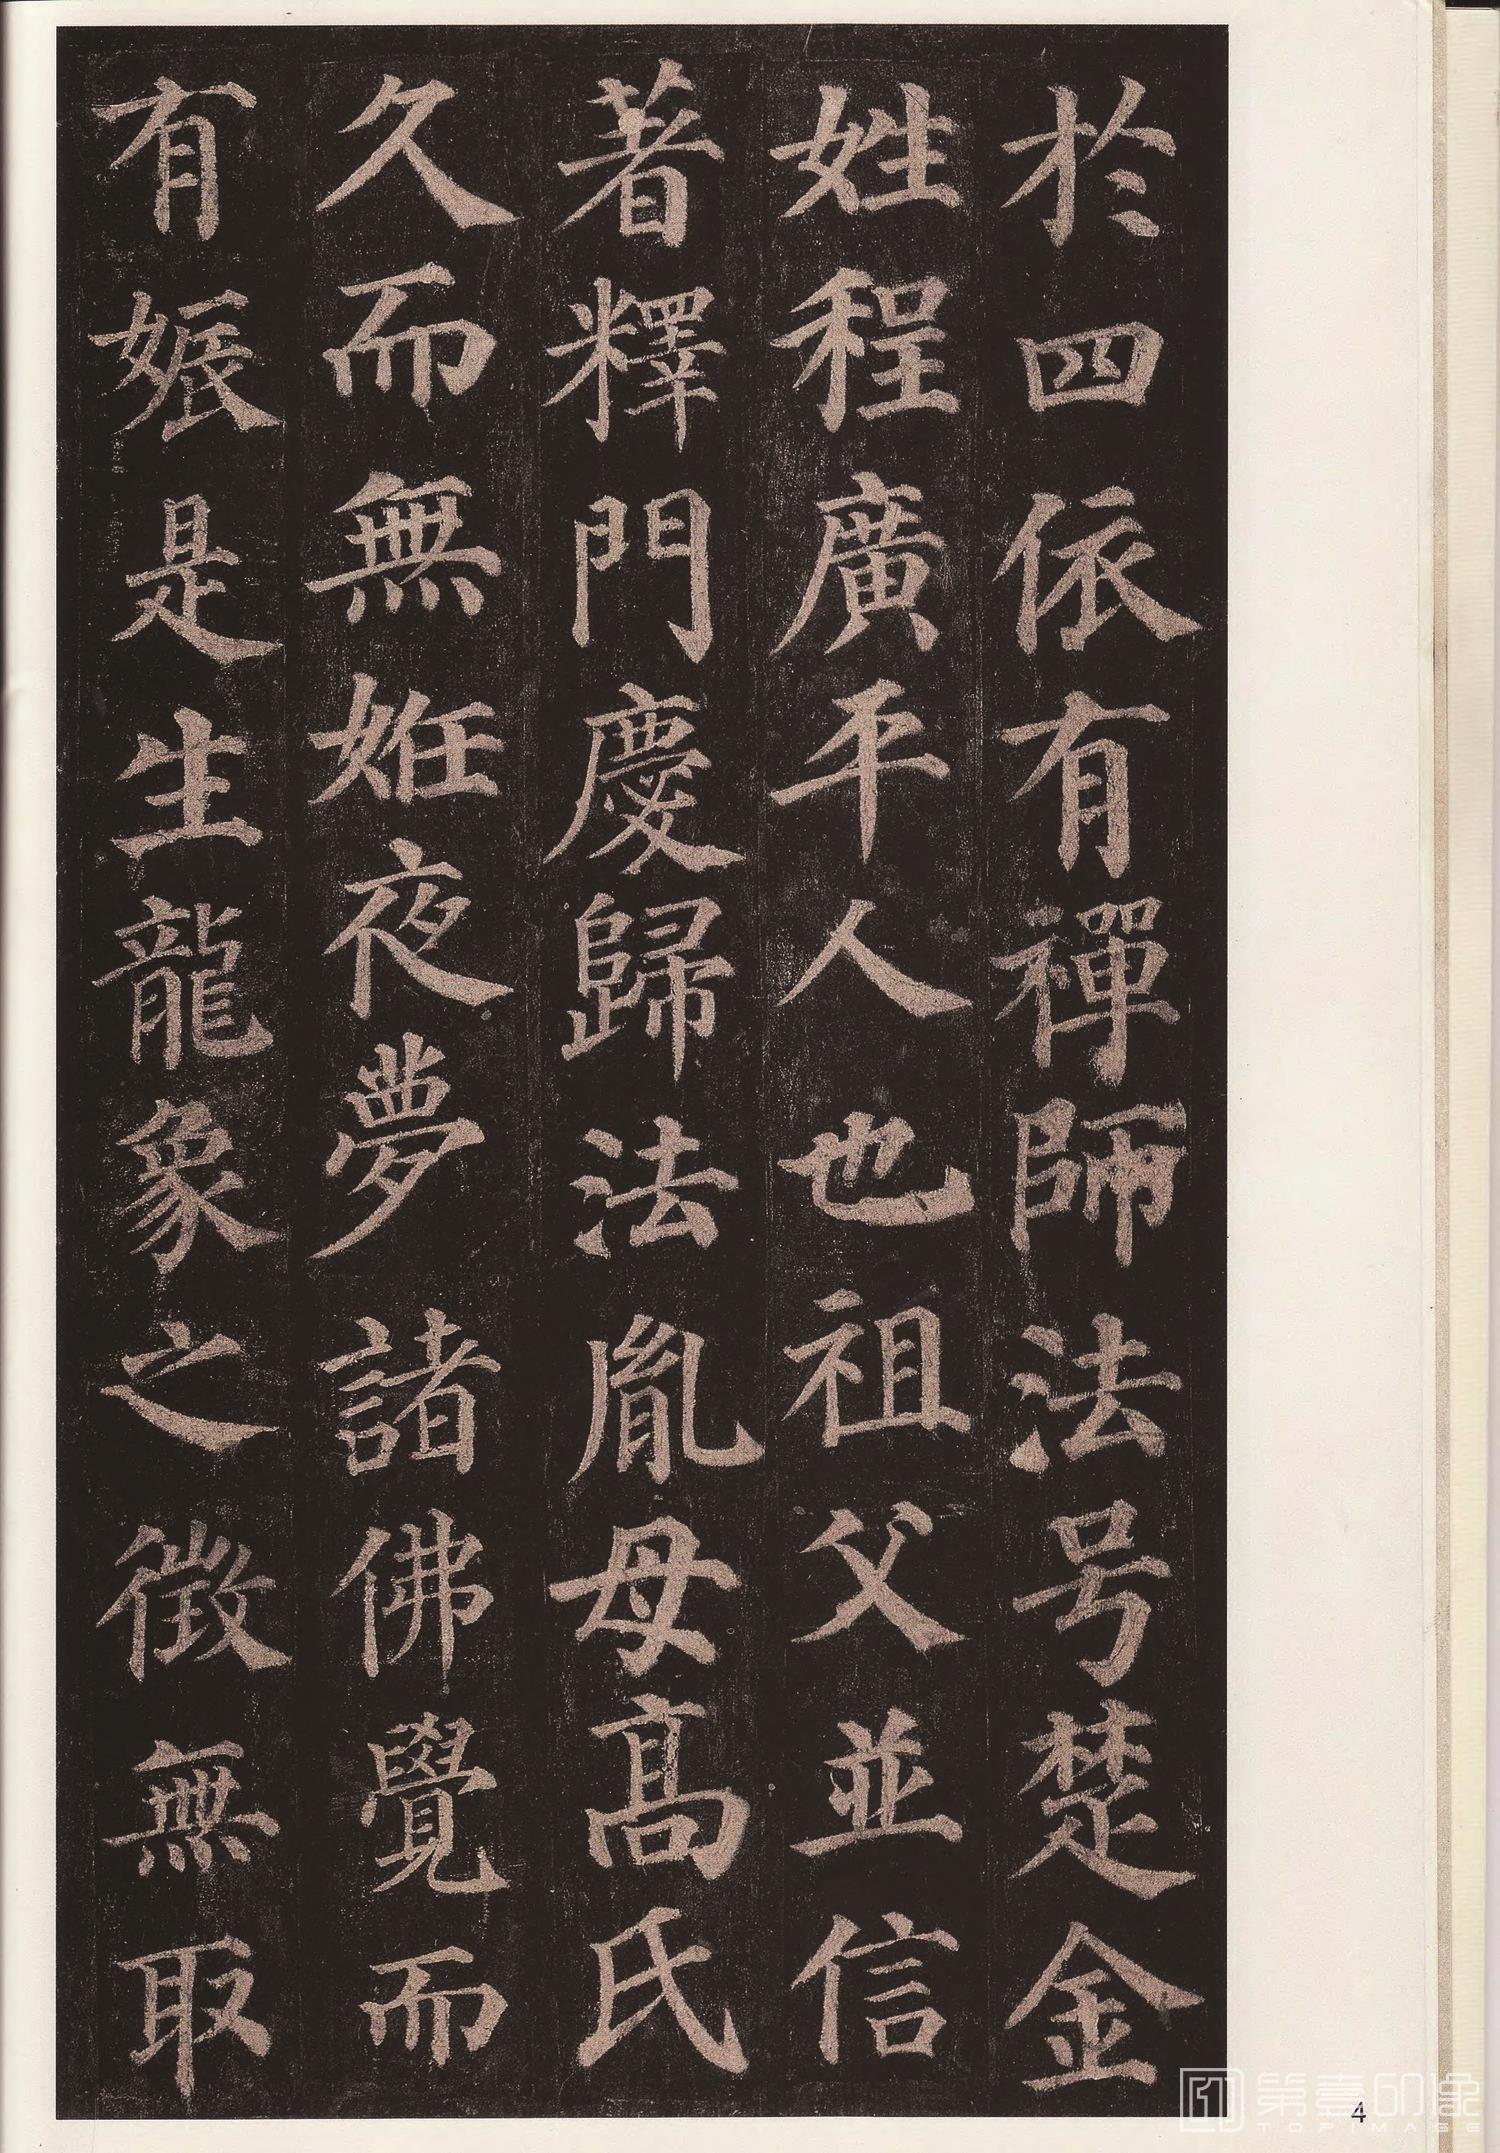 於四依有禪師法号楚金
姓程廣平人也祖父並信
著釋門慶歸法胤母高氏
久而無姙夜夢諸佛覺而
有娠是生龍象之徵無取
4
第壹印像
TOPIMAGE